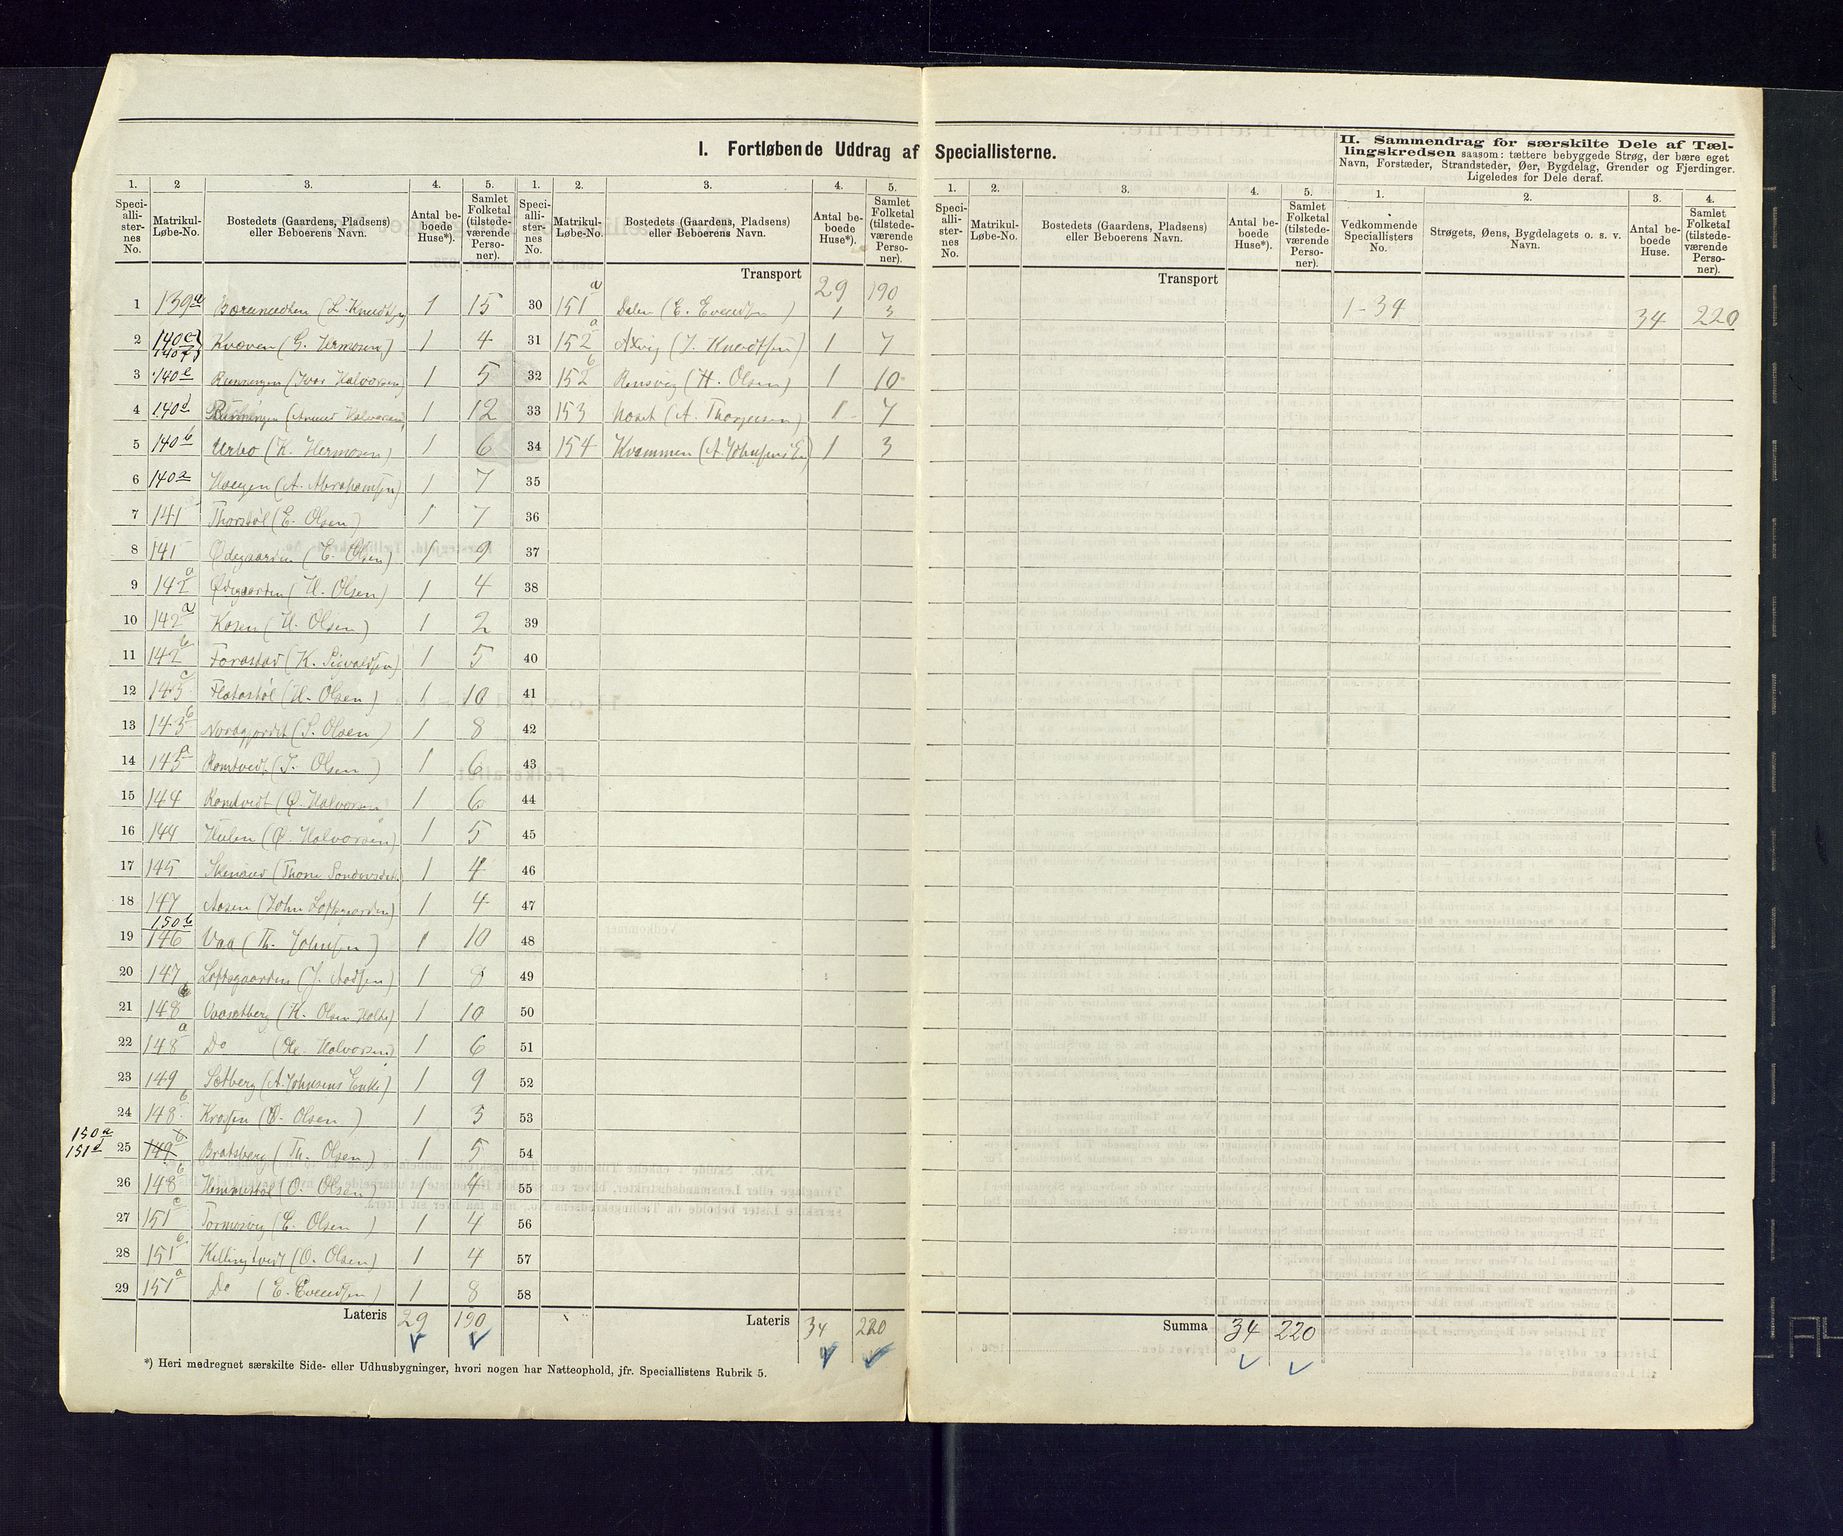 I. Fortløbende Uddrag af Speciallisterne.
1. 2 3. 4. 5.
Speci-alli-ster-nes No. Matrikul-Løbe-No. Bostedets (Gaardens, Pladsens) eller Beboerens Navn. Antal be-boede Huse*). Samlet Folketal (tilstede-værende Perso-ner).
1 139a (L. Knudtsen) 1 15
2 140c 140f Kvæven (G. Hermosen) 1 4
3 140e Rønningen (Ivar Halvorsen) 1 5
4 140d Rønningen (Halvorsen) 1 12
5 140b Urbo (K. Hermosen) 1 6
6 140a Haugen (A. Abrahamsen) 1 7
7 141 Thorstøl (E. Olsen) 1 7
8 141 Ødegaarden (E. Olsen) 1 9
9 142a Ødegaarden (H. Olsen) 1 4
10 142a Kosen (H. Olsen) 1 2
11 142b Forastad (K. Sigvaldsen) 1 5
12 143c Flatastøl (H. Olsen) 1 10
13 143b Nordgjordet (S. Olsen) 1 8
14 143a Romtvedt (J. Olsen) 1 6
15 144 Romtvedt (Ø. Halvorsen 1 6
16 144 Hulen (Ø. Halvorsen) 1 5
17 145 (Thone 1 4
18 147 Aasen (John Loftsgaarden) 1 4
19 150b 146 Vaa (Th. Johnsen) 1 10
20 147 Loftsgaarden (J. Aadsen) 1 8
21 148b (K. Olsen Holte) 1 10
22 148a Do (Halvorsen) 1 6
23 149 Sætberg (A. Johnsens Enke) 1 9
24 148b Krossen (O. Olsen) 1 3
150a 151d 25 149b Bratsberg (Th. Olsen) 1 5
26 148b Hommestøl (O. Olsen) 1 4
27 151c Tormosvig (E. Olsen) 1 4
28 151b Killingtvedt (O. Olsen) 1 4
29 151a Do (E. Evendsen) 1 8
Lateris 29 190
1. 2. 3. 4. 5.
Speci-alli-ster-nes No. Matrikul-Løbe-No. Bostedets (Gaardens, Pladsens) eller Beboerens Navn. Antal be-boede Huse*). Samlet Folketal (tilstede-værende Perso-ner).
Transport 29 190
30 151a Dalen (E. Evendsen) 1 3
31 152a Axvig (J. Knudtsen) 1 7
32 152b Rensvig (H. Olsen) 1 10
33 153 Noset (A. Thorgersen) 1 7
34 154 Kvammen (A. Johnsens E) 1 3
35
36
37
38
39
40
41
42
43
44
45
46
47
48
49
50
51
52
53
54
55
56
57
58
Lateris 34 220
*) Heri medregnet særskilte Side- eller Udhusbygninger, hvori nogen har Natteophold, jfr. Speciallistens Rubrik 5.
1. 2. 3. 4. 5.
Speci-alli-ster-nes No. Matrikul-Løbe-No. Bostedets (Gaardens, Pladsens) eller Beboerens Navn. Antal be-boede Huse*). Samlet Folketal (tilstede-værende Perso-ner).
Transport
Summa 34 220
II. Sammendrag for særskilte Dele af Tæl-
lingskredsen saasom: tættere bebyggede Strøg, der bære eget
Navn, Forstæder, Strandsteder, Øer, Bygdelag, Grender og Fjerdinger.
Ligeledes for Dele deraf.
1. 2. 3. 4.
Vedkommende Speciallisters No. Strøgets, Øens, Bygdelagets o. s. v. Navn. Antal be-boede Huse. Samlet Folketal (tilstede-værende Perso-ner).
1-34 34 220